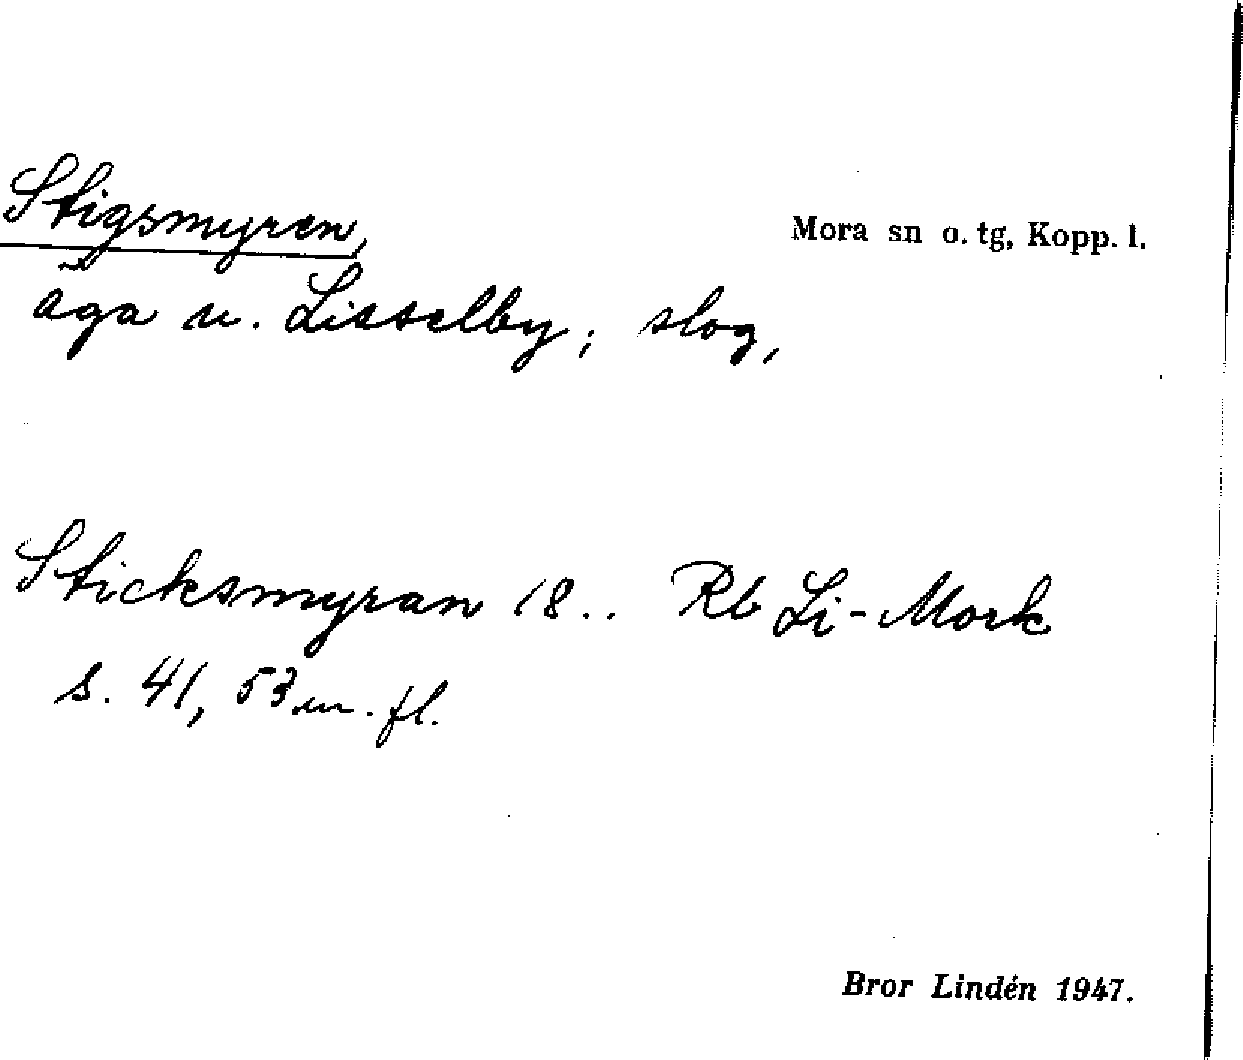 Stigsmyren,
Mora sn o. tg, Kopp. l.
äga u. Lisselby; slog,
Sticksmyran 18.. Rb Li-Mork
s. 41, 53 m. fl.
Bror Lindén 1947.